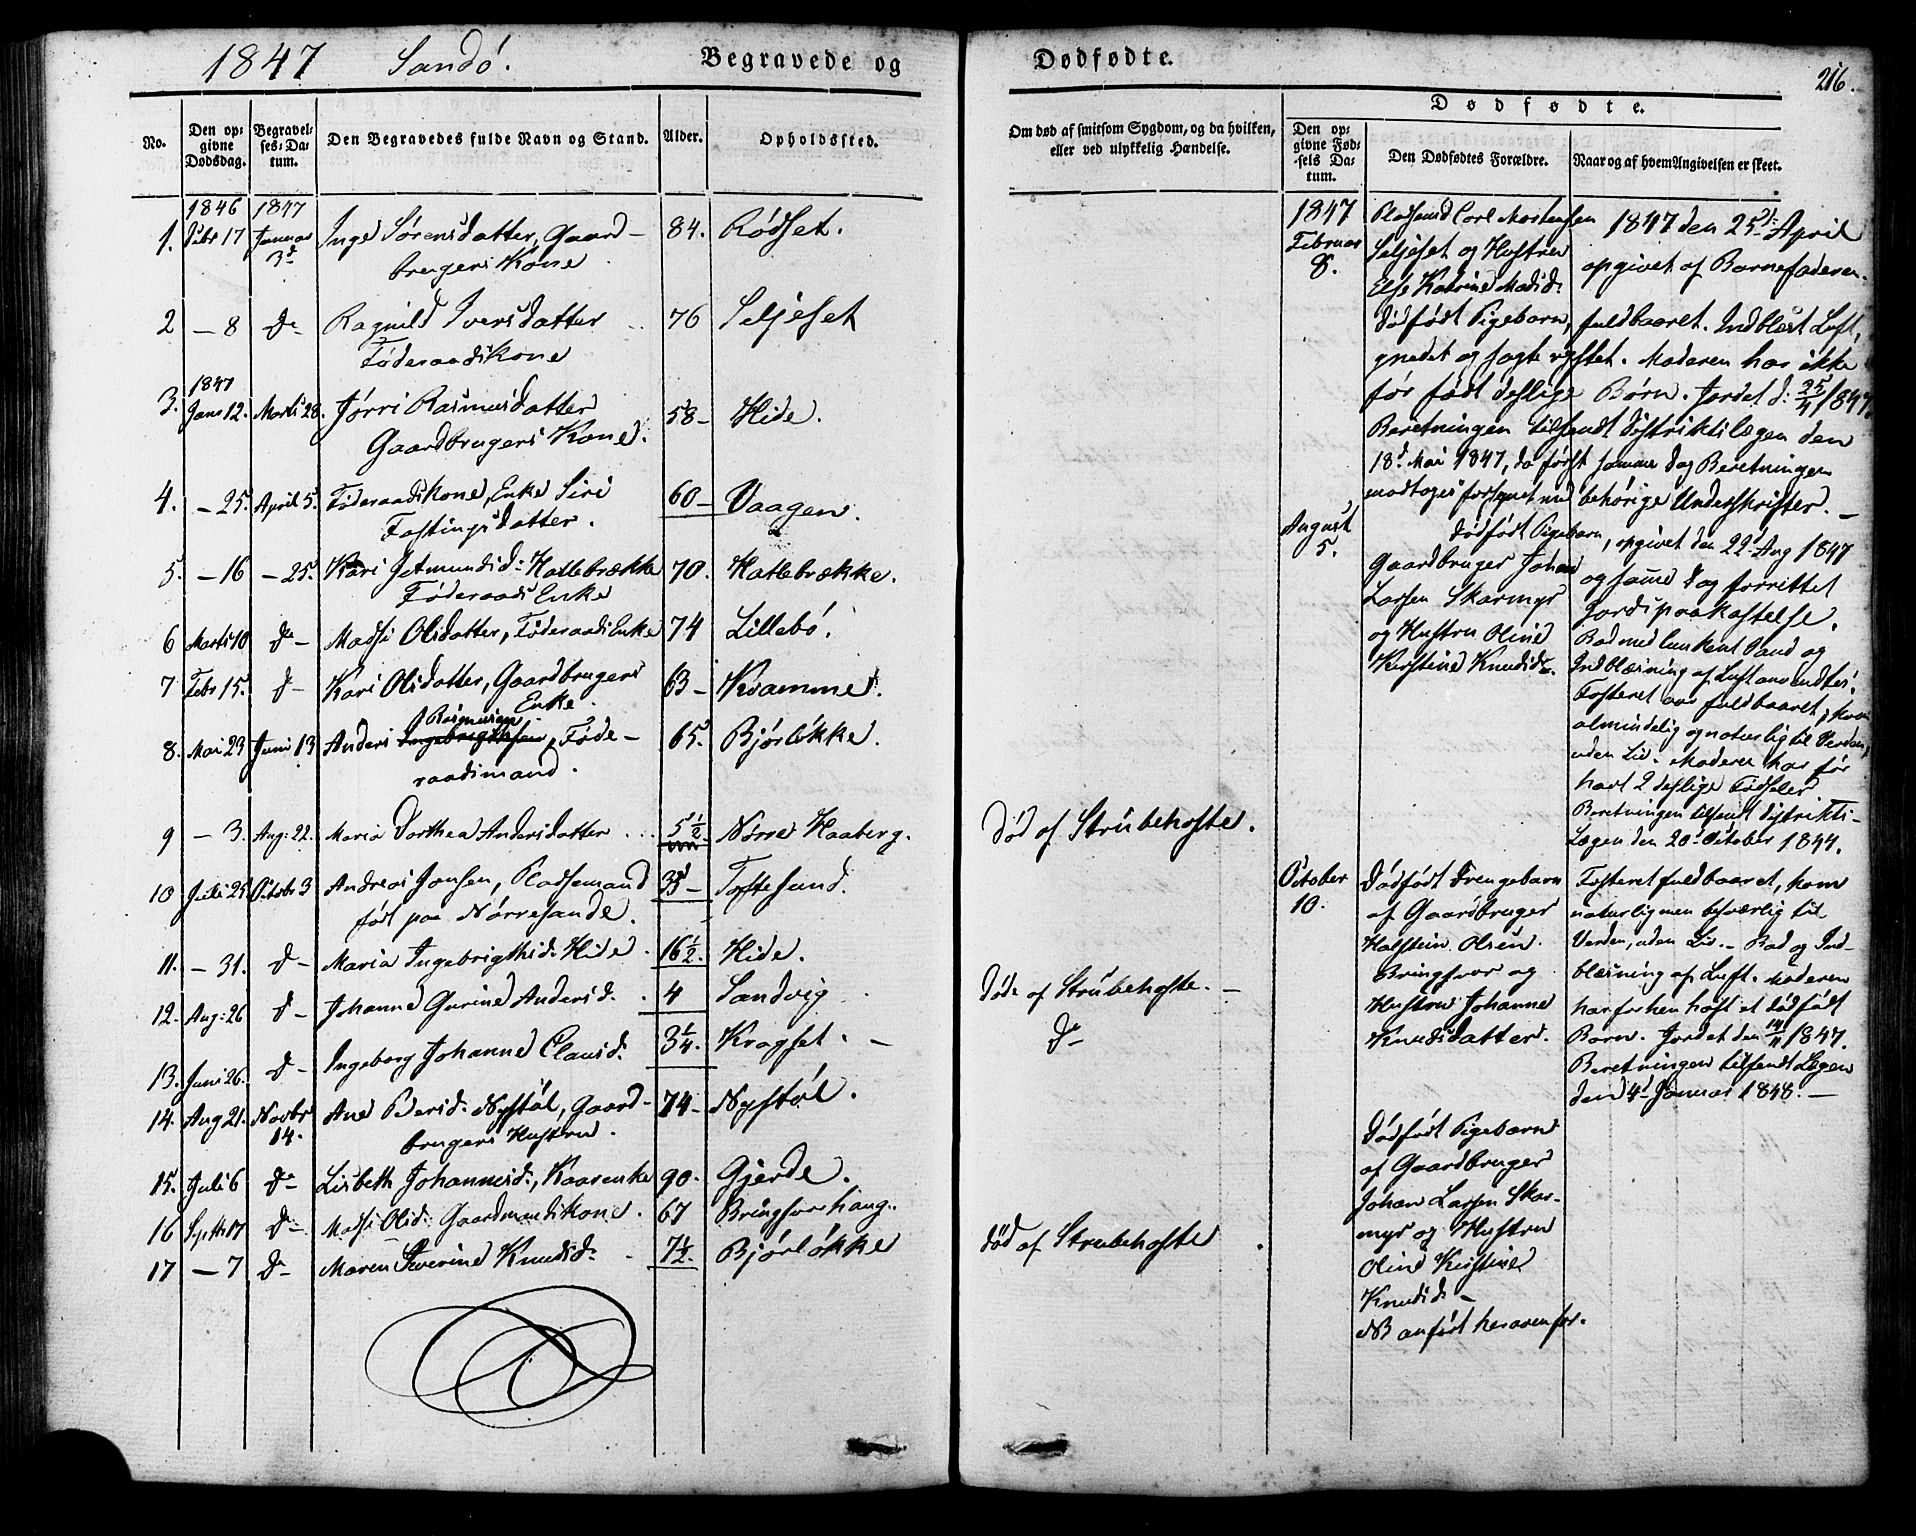 1847 Sandö. Begravede og
No.
Den op=
givne
Dødsdag.
Begravel=
ses=Da=
tum.
Den Begravedes fulde Navn og Stand.
Alder.
Opholdssted.
1846 1847
1. Debr 17 Januar 3d Inge Sørensdatter, Gaard- 84. Rödset.
brugers Kone
2 - 8 do Ragnild Iversdatter 76 Seljeset
Föderaadskone
1847
3. Janr 12. Marts 28. Jørri Rasmusdatter 58- Hide.
Gaardbrugers Kone.
4. - 25. April 5. Föderaadskone, Enke Siri 60- Vaagen.
Fostingsdatter.
5. - 16 - 25. Kari Jetmundsd: Hatlebrække 70. Hatlebrække.
Föderaads Enke
6 Marts 10 do - Madsi Olsdatter, Föderaads Enke 74 Lillebö.
7 Febr 15. d- Kari Olsdatter, Gaardbrugers 63- Kvamme.
Enke.
Rasmusen
8. Mai 23 Juni 13 Anders Ingebrigtsen, Föde- 65. Bjørlökke.
raadsmand.
9 - 3. Aug: 22. Maria Dorthea Andersdatter 5 1/2 Nörre Haaberg.
10 Juli 25 Octobr 3 Andreas Jonsen, Pladsemand 33- Toftesund.
født paa Nörresande.
11. - 31. d- Maria Ingebrigtsd: Hide. 16 1/2. Hide.
12. Aug: 26 d- Johanne Gurine Andersd. 4 Sandvig
13. Juni 26. d- Ingeborg Johanne Clausd. 3 1/4. Kragset.
14. Aug 21. Novbr 14. Ane Bersd: Nystöl, Gaard- 74- Nystöl.
brugers Hustru.
15. Juli 6 do Lisbeth Johannesd., Kaarenke 90. Gjerde.
16 Septb 17 do- Madsi Olsd: Gaardmandskone. 67 Bringsvorhaug.
17 - 7 do- Maren Severine Knudsd. 7 1/2. Bjørlökke
Dødfødte. 216.
Om død af smitsom Sygdom, og da hvilken,
eller ved ulykkelig Hændelse.
Dødfødte.
Den op=
givne Fød=
sels Da=
tum.
Den Dødfødtes Forældre.
Naar og af hvem Angivelsen er skeet.
Död af Strubehoste.
Död af Strubehoste. -
do
död af Strubehoste.
1847
Februar
8.
Pladsmd Carl Mortensen
Seljeset og Hustru
Else Katrine Madsd:
1847 den 25d: April
opgivet af Barnefaderen.
Dödfödt Pigebarn, fuldbaaret. Indblæst Luft,
gnedet og sagte rystet. Moderen har ikke
för födt deslige Börn. Jordet d: 25/4 1847.
Beretningen tilsendt Distriktslægen den
18d Mai 1847, da först samme Dag Beretningen
modtoges forsynet med behörige Underskrifter. -
August
5.
Dödfödt Pigebarn, opgivet den 22 Aug 1847
Gaardbruger Johan
Larsen Skarmyr
og Hustru Oline
Kirstine Knudsd.
og samme Dag forrettet
Jordspaakastelse.
Bad med lunkent Vand og
Indblæsning af Luft anvendtes.
Fosteret var fuldbaaret, kom
almindelig og naturlig til Verden,
uden Liv. Moderen har för
havt 2 deslige Födseler
Beretningen tilsendt Distrikts-
Lægen den 20d October 1847.
October
10.
Dödfödt Drengebarn
af Gaardbruger
Halstein Olsen
Bringsvor og
Hustrue Johanne
Knudsdatter.
Fosteret fuldbaaret, kom
naturlig men besværlig til
Verden, uden Liv. - Bad og Ind-
blæsning af Luft. Moderen
har forhen havt et dödfödt
Barn. Jordet den 14/11 1847.
Beretningen tilsendt Lægen
den 4d Januar 1848. -
Dödfödt Pigebarn
af Gaardbruger
Johan Larsen Skar-
myr og Hustru
Oline Kirstine
Knudsd. -
NB anfört herovenfor.